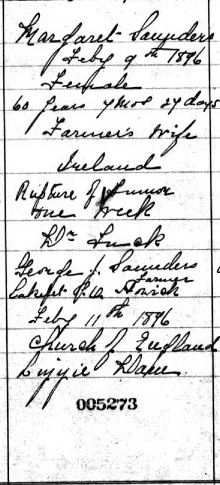 Margaret Saunders
Feby 9th 1896
Female
60 years 7 mos 27 days
Farmer's Wife
Ireland
Rupture of Tumor
One Week
Dr Luck
George J. Saunders
Farmer
P.O.
Feby 11th 1896
Church of England
Lizzie
005273